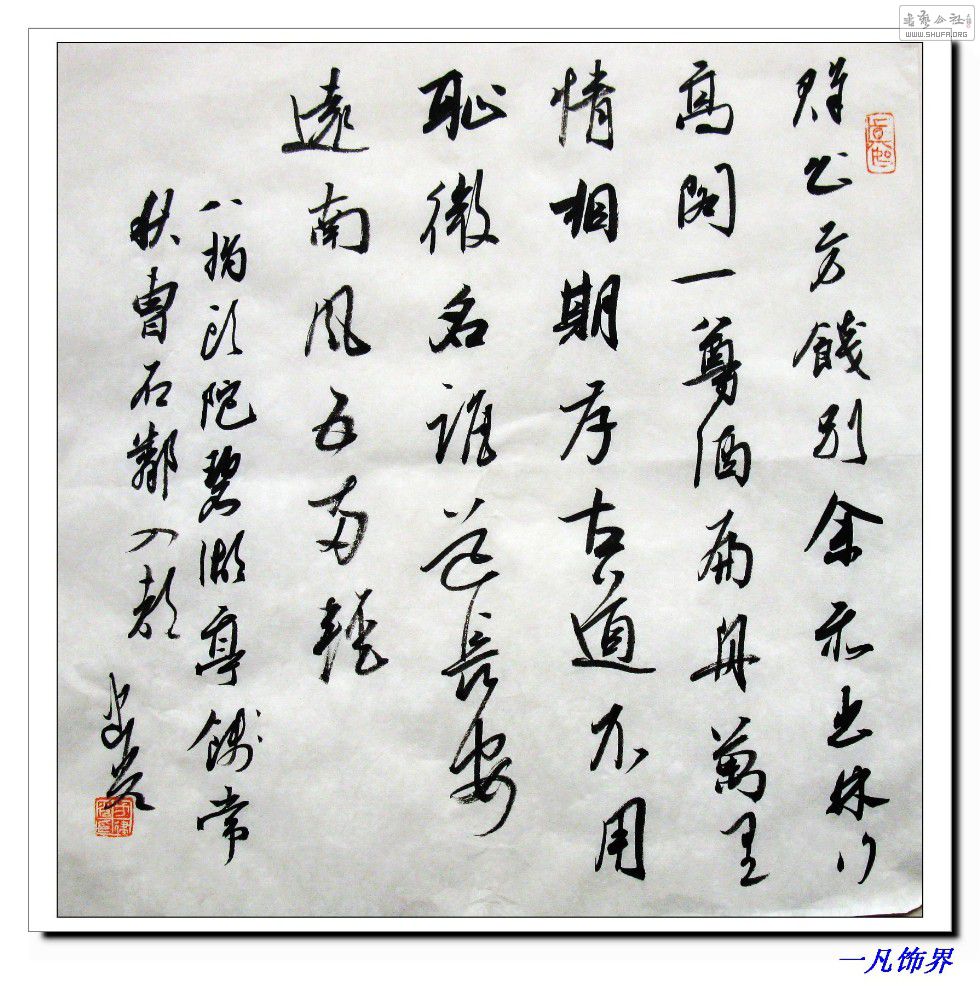 書藝公社
WWW.SHUFA.ORG
群公方餞别余亦出林行
高閣一尊酒扁舟萬里
情相期存古道不用
恥微名誰道長安
遠南風五両輕
八指头陀碧湖亭餞常
秋曹石鄰入都
一凡饰界